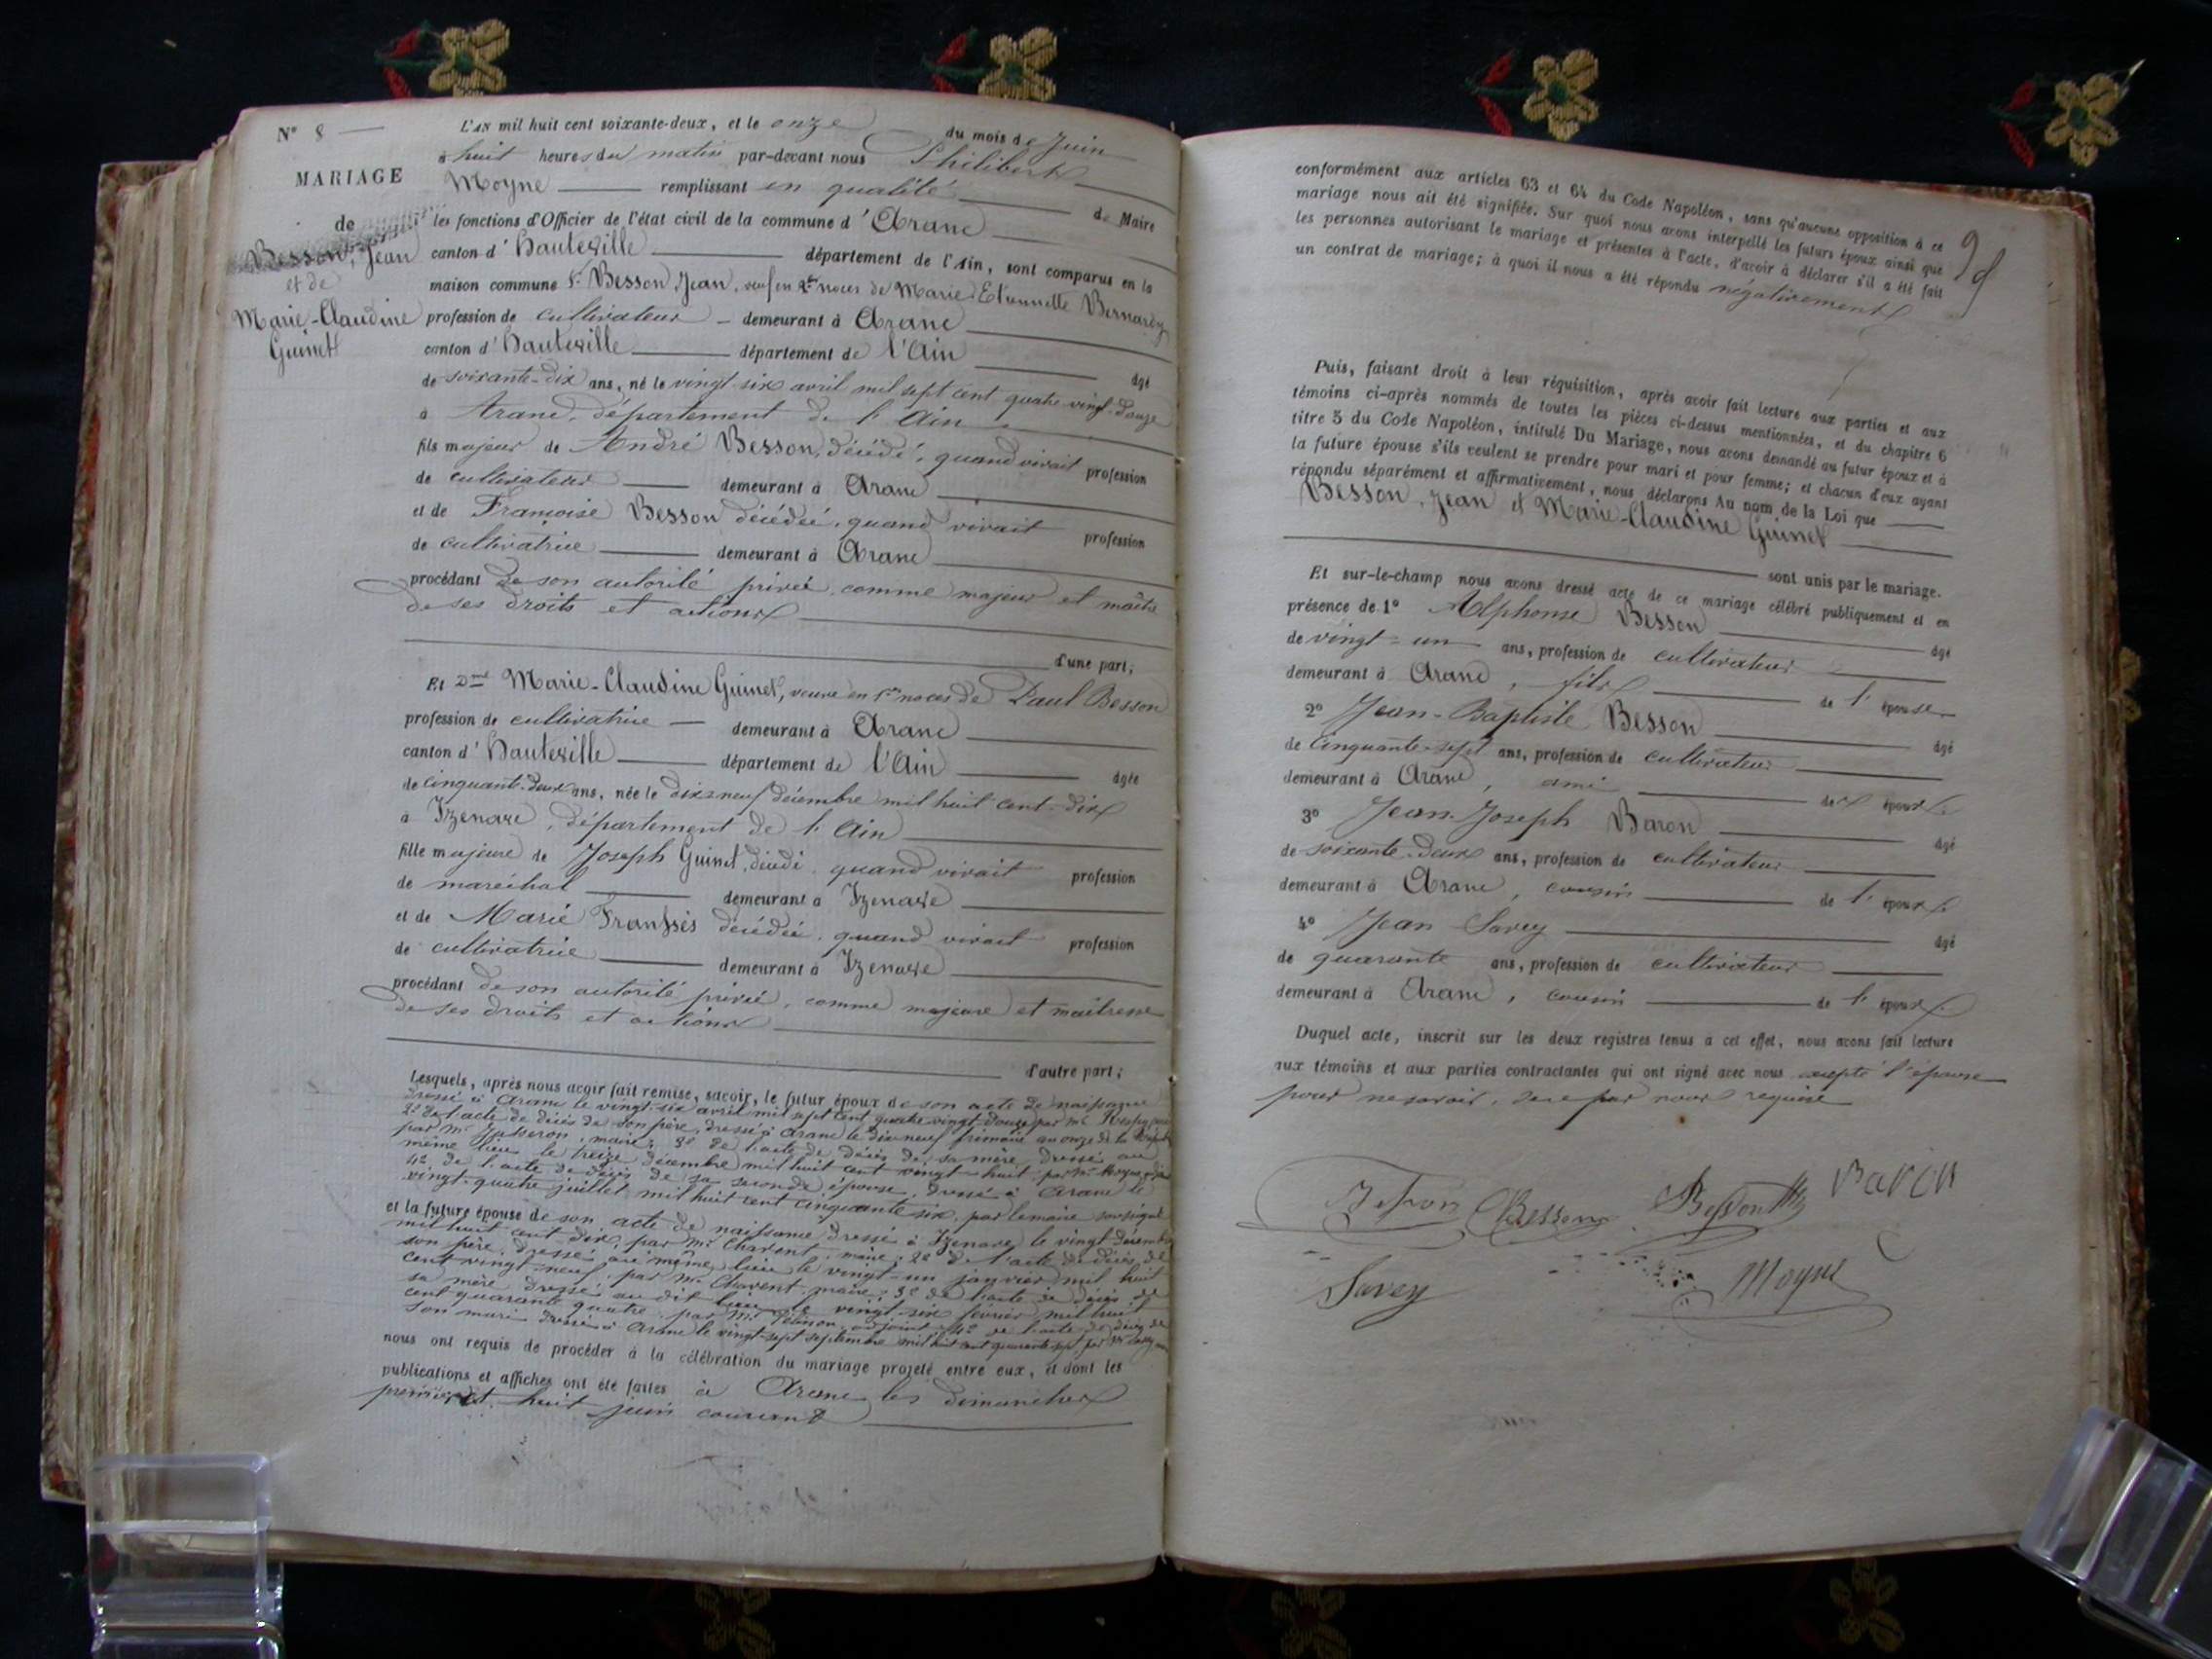 N° 8
MARIAGE
de
Besson, Jean
et de
Marie-Claudine
Guinet
L'AN mil huit cent soixante-deux, et le onze du mois de Juin
à huit heures du matin par-devant nous Philibert
Moyne remplissant en qualité de Maire
les fonctions d'Officier de l'état civil de la commune d'Aranc
canton d'hauteville département de l'Ain, sont comparus en la
maison commune Sr Besson, Jean, veuf en 2des noces de Marie-Etiennette Bernardy
profession de cultivateur demeurant à Aranc
canton d'hauteville département de l'Ain âgé
de soixante-dix ans, né le vingt-six avril mil sept cent quatre-vingt-douze
à Aranc, département de l'Ain
fils majeur de André Besson, décédé, quand vivait profession
de cultivateur demeurant à Aranc
et de Françoise Besson décédée, quand vivait profession
de cultivatrice demeurant à Aranc
procédant de son autorité privée, comme majeur et maître
de ses droits et actions
d'une part;
Et Dme Marie-Claudine Guinet, veuve en 1res noces de Paul Besson
profession de cultivatrice demeurant à Aranc
canton d'hauteville département de l'Ain âgée
de cinquante-deux ans, née le dix-neuf décembre mil huit cent-dix
à Izenave, département de l'Ain
fille majeure de Joseph Guinet, décédé, quand vivait profession
de maréchal demeurant à Izenave
et de Marie décédée, quand vivait profession
de cultivatrice demeurant à Izenave
procédant de son autorité privée, comme majeure et maîtresse
de ses droits et actions
d'autre part;
Lesquels, après nous avoir fait remise, savoir, le futur époux de son acte de naissance
dressé à Aranc le vingt-six avril mil sept cent quatre-vingt-douze par Mr
2° de l'acte de décès de son père, dressé à Aranc le dix-neuf frimaire an onze de la
par Mr maire; 3° de l'acte de décès de sa mère dressé au
même lieu le treize décembre mil huit cent vingt-huit par Mr Moyne
4° de l'acte de décès de sa seconde épouse, dressé à Aranc le
vingt-quatre juillet mil huit cent cinquante-six, par le maire soussigné
et la future épouse de son acte de naissance dressé à Izenave le vingt décembre
mil huit cent dix, par Mr Charent, maire; 2° de l'acte de décès de
son père, dressé au même lieu le vingt-un janvier mil huit
cent vingt-neuf, par Mr Charent, maire; 3° de l'acte de décès de
sa mère dressé au dit lieu le vingt-six février mil huit
cent quarante quatre, par Mr adjoint; 4° de l'acte de décès de
son mari dressé à Aranc le vingt-sept septembre mil huit cent quarante-sept par Mr
nous ont requis de procéder à la célébration du mariage projeté entre eux, et dont les
publications et affiches ont été faites à Aranc les dimanches
premier et huit juin courant
conformément aux articles 63 et 64 du Code Napoléon, sans qu'aucune opposition à ce
mariage nous ait été signifiée. Sur quoi nous avons interpellé les futurs époux ainsi que
les personnes autorisant le mariage et présentes à l'acte, d'avoir à déclarer s'il a été fait
un contrat de mariage; à quoi il nous a été répondu négativement
Puis, faisant droit à leur réquisition, après avoir fait lecture aux parties et aux
témoins ci-après nommés de toutes les pièces ci-dessus mentionnées, et du chapitre 6
titre 5 du Code Napoléon, intitulé Du Mariage, nous avons demandé au futur époux et à
la future épouse s'ils veulent se prendre pour mari et pour femme; et chacun d'eux ayant
répondu séparément et affirmativement, nous déclarons Au nom de la Loi que
Besson, Jean et Marie-Claudine Guinet
sont unis par le mariage.
Et sur-le-champ nous avons dressé acte de ce mariage célébré publiquement et en
présence de 1° Alphonse Besson âgé
de vingt-un ans, profession de cultivateur
demeurant à Aranc, fils de l'épouse
2° Jean-Baptiste Besson âgé
de cinquante-sept ans, profession de cultivateur
demeurant à Aranc, ami des époux
3° Jean-Joseph Baron âgé
de soixante-deux ans, profession de cultivateur
demeurant à Aranc, cousin de l'époux
4° Jean Savey âgé
de quarante ans, profession de cultivateur
demeurant à Aranc, cousin de l'époux
Duquel acte, inscrit sur les deux registres tenus à cet effet, nous avons fait lecture
aux témoins et aux parties contractantes qui ont signé avec nous excepté l'épouse
pour ne savoir, de ce par nous requise
Besson Besson Baron
Savey Moyne